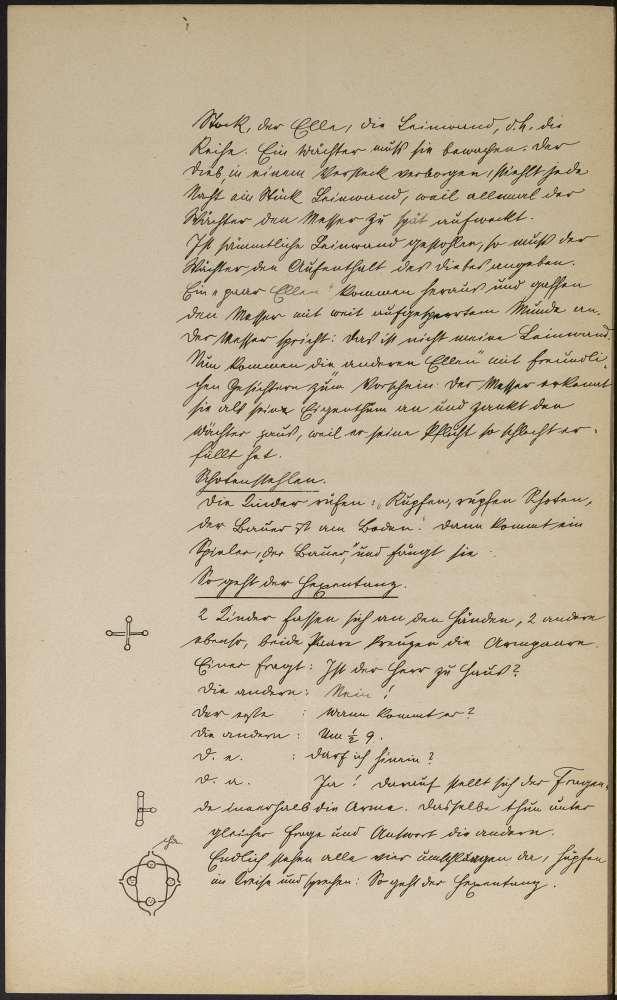 Stock, der Elle, die Leinwand, d. h. die
Reihe. Ein Wächter muß sie bewachen. Der
Dieb, in einem Versteck verborgen, stiehlt jede
Nacht ein Stück Leinwand, weil allemal der
Wächter den Messer zu spät aufweckt.
Ist sämmtliche Leinwand gestohlen, so muß der
Wächter den Aufenthalt des Diebes angeben.
Ein paar „Ellen“ kommen heraus und gaffen
den Messer mit weit aufgesperrtem Munde an.
Der Messer spricht: Das ist nicht meine Leinwand.
Nun kommen die anderen „Ellen“ mit freundli-
chen Gesichtern zum Vorschein. Der Messer erkennt
sie als seine Eigenthum an und zankt den
Wächter aus, weil er seine Pflicht so schlecht er-
füllt hat.
Schotenstehlen.
Die Kinder rufen: „Rupfen, rupfen Schoten,
der Bauer ist am Boden.“ Dann kommt ein
Spieler, „der Bauer“, und fängt sie.
So geht der Hexentanz.
2 Kinder fassen sich an den Händen, 2 andere
ebenso, beide Paare kreuzen die Armpaare.
Einer fragt: Ist der Herr zu Haus?
Die andern: Nein!
Der erste : Wann kommt er?
Die andern : Um ½ 9.
D. e. : Darf ich hinein?
D. a. Ja! Darauf stellt sich der Fragen-
de innerhalb die Arme. Dasselbe thun unter
gleicher Frage und Antwort die andern.
Endlich stehen alle vier umschlungen da, hüpfen
im Kreise und sprechen: So geht der Hexentanz.